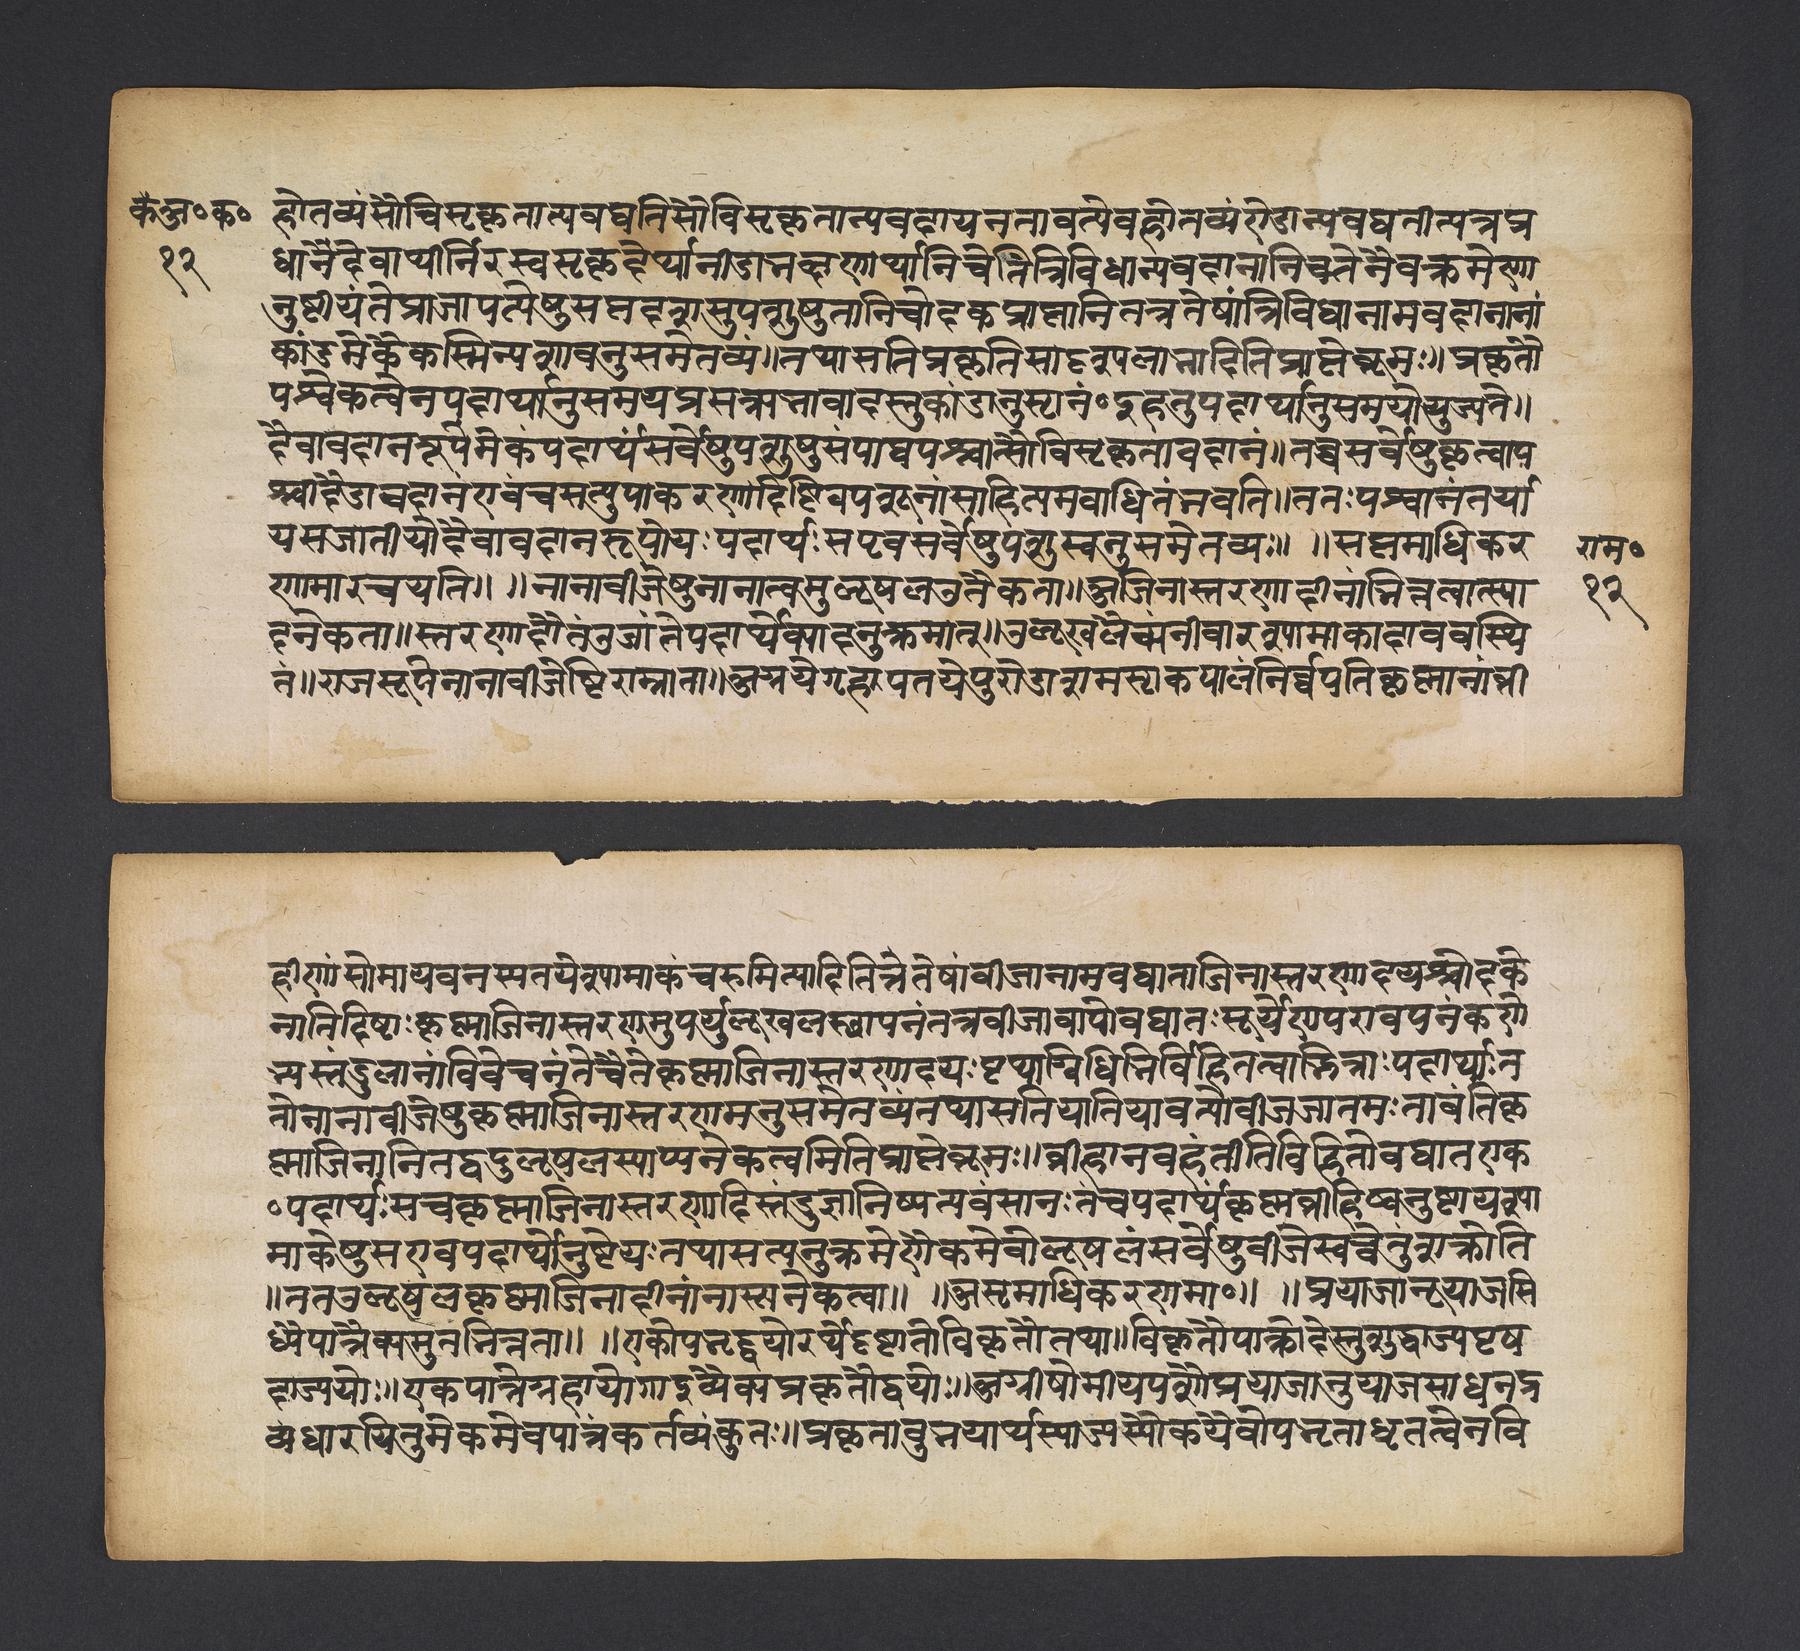 कंअ०क०
१२
होतव्यंसौविसृकृतात्यवद्यतिसौविसृकृतान्यवदायनतावत्येवहोतव्यंएडान्यवद्यतीत्यत्रप्र
धानैदैवार्थार्निरस्वसृकृदेर्थ्यानीडाभक्षणार्थानिचेतित्रिविधान्यवदानानिचतेनैवक्रमेणा
नुष्टीयंतेप्राजापत्येषुसप्तदशसुपशुषुतानिचोदकप्राप्तानितत्रतेषांत्रिविधानामवदानानां
कांडमेकैकस्मिन्पशावनुसमेतव्यं॥तथासतिप्रकृतिसादृश्यलाभादितिप्राप्तेब्रूमः॥प्रकृतौ
पश्वेकत्वेनपदार्थानुसमयप्रसक्त्यभावादस्तुकांडानुस्टानं०दुहतुपदार्थानुसमयोयुज्यते॥
दैवावदानरूपमेकंपदार्थंसर्वेषुपशुषुसंपाद्यपश्चात्सौविसृकृतावदानं॥तच्चसर्वेषुकृत्वाप
श्चादैडावदानंएवंचसत्युपाकरणादिष्टिवपशूनांसाहित्यमवाधितंभवति॥ततःपश्वानंतर्या
यसजातीयोदैवावदानरूपोयःपदार्थःसएवसर्वेषुपशुस्वनुसमेतव्यः॥ ॥सप्तमाधिकर
णमारचयति॥ ॥नानावीजेषुनानात्वमुलूषलउतैकता॥अजिनास्तरणादीनांभिन्नत्वात्स्या
दनेकता॥स्तरणादौतंडुलांतेपदार्थैक्यादनुक्रमात्॥उलूखलैक्यंनीवारश्यामाकादावस्थि
तं॥राजसूयेनानावीजेष्टिराम्नाता॥अग्नयेगृहपतयेपुरोडाशमस्टाकपालंनिर्वपतिकृष्णानांव्री
राम०
१२
हीणांसोमायवनस्पतयेश्यामाकंचरुमित्यादितत्रतेषांवीजानामवघाताजिनास्तरणादयश्चोदके
नातिदिष्टाःकृष्णाजिनास्तरणमुपर्युलूखलस्थापनंतत्रवीजावापोवघातःसूर्येणपरावपनंकणे
भ्यस्तंडुलानांविवेचनंतेचैतेकृष्णाजिनास्तरणादयःपृथग्विधिभिर्विहितत्वाद्भिन्नाःपदार्थाःत
तोनानावीजेषुकृष्णाजिनास्तरणमनुसमेतव्यंतथासतियातियावत्यौवीजजातमःतावंतिकृ
ष्णाजिनानितद्वदुलूषलस्याप्यनेकत्वमितिप्राप्तेब्रूमः॥व्रीहीनवहंतीतिविहितोवघातएक
०पदार्थःसचकृष्णाजिनास्तरणादिस्तंडुलनिष्पत्यवसानःतंचपदार्थंकृष्णव्रीहिष्वनुष्टायश्या
माकेषुसएवपदार्थोनुष्टेयःतथासत्यनुक्रमेणैकमेवोलूषलंसर्वेषुवीजेस्वन्वेतुंशक्नोति
॥ततउलूषलकृष्णाजिनादीनांनास्त्यनेकत्वा॥ ॥अस्टमाधिकरणमा०॥ ॥प्रयाजानूयाजसि
ध्यैपात्रैक्यमुतभिन्नता॥ ॥एकोपभृद्द्वयोरर्थेदृष्टातोविकृतौतथा॥विकृतौपाक्रोहेस्तुशुद्धाज्यपृष
दाज्ययोः॥एकपात्रेग्रहायोगादुव्यैक्यप्रकृतौद्वयोः॥अग्नीषोमीयपशौप्रयाजानुयाजसाधनद्र
व्यंधारयितुमेकमेवपात्रंकर्तव्यंकुतः॥प्रकृतावुभयार्थस्याज्यस्यैकयैवोपभृताधृतत्वेनवि